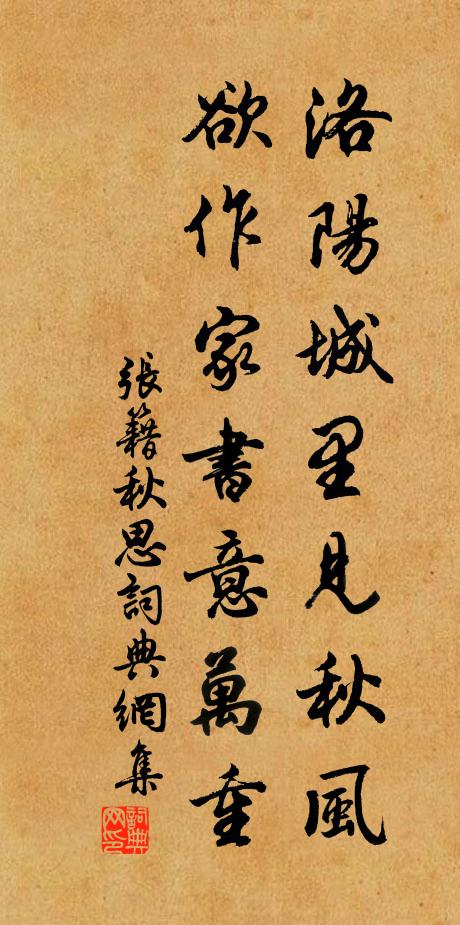 洛陽城里見秋風
欲作家書意萬重
張籍秋思詞典網集
詞典网印